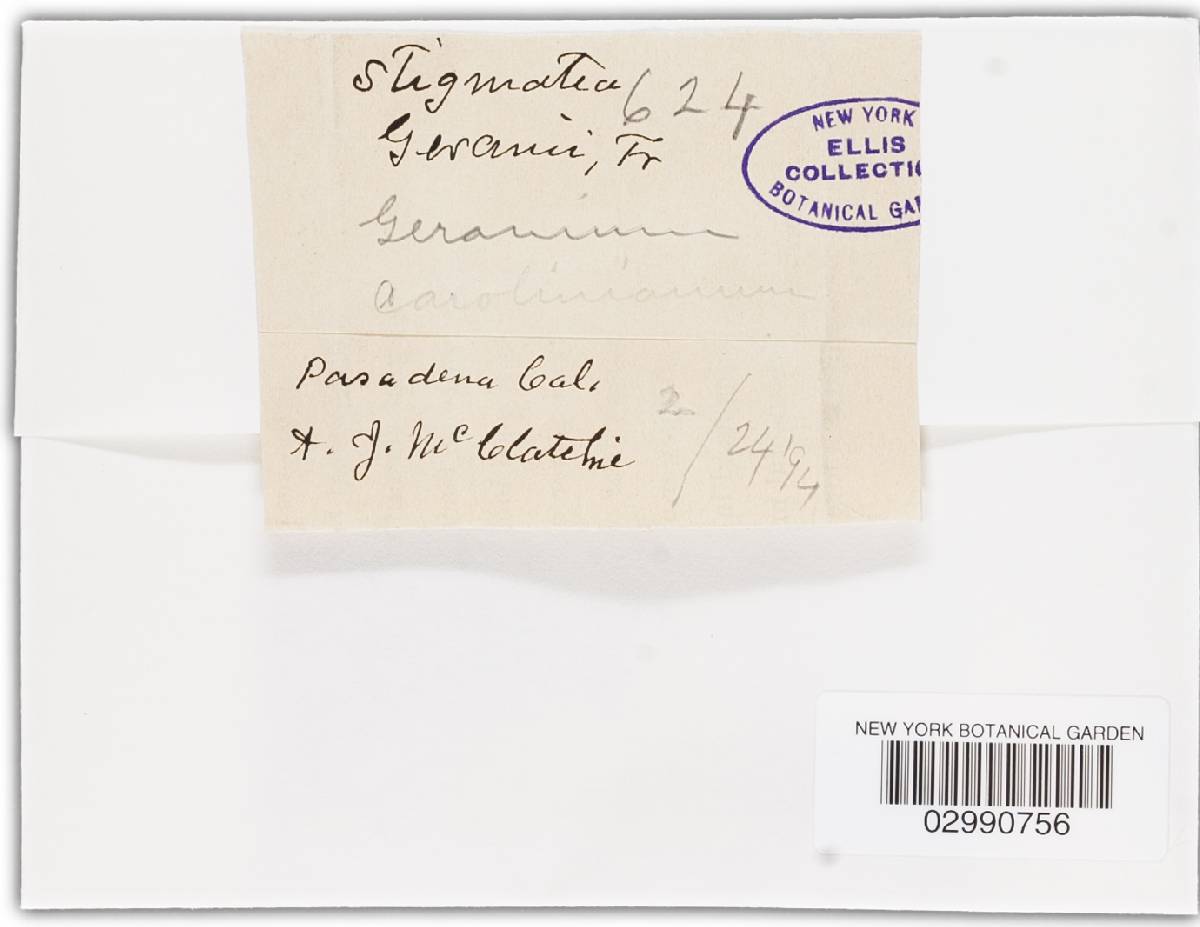 Stigmatea 624
Geranii, Fr
NEW YORK
ELLIS
COLLECTIO
BOTANICAL GAR
Geranium
Carolinianum
Pasadena Cal.
A. J. McClatchie 2/24/94
NEW YORK BOTANICAL GARDEN
02990756